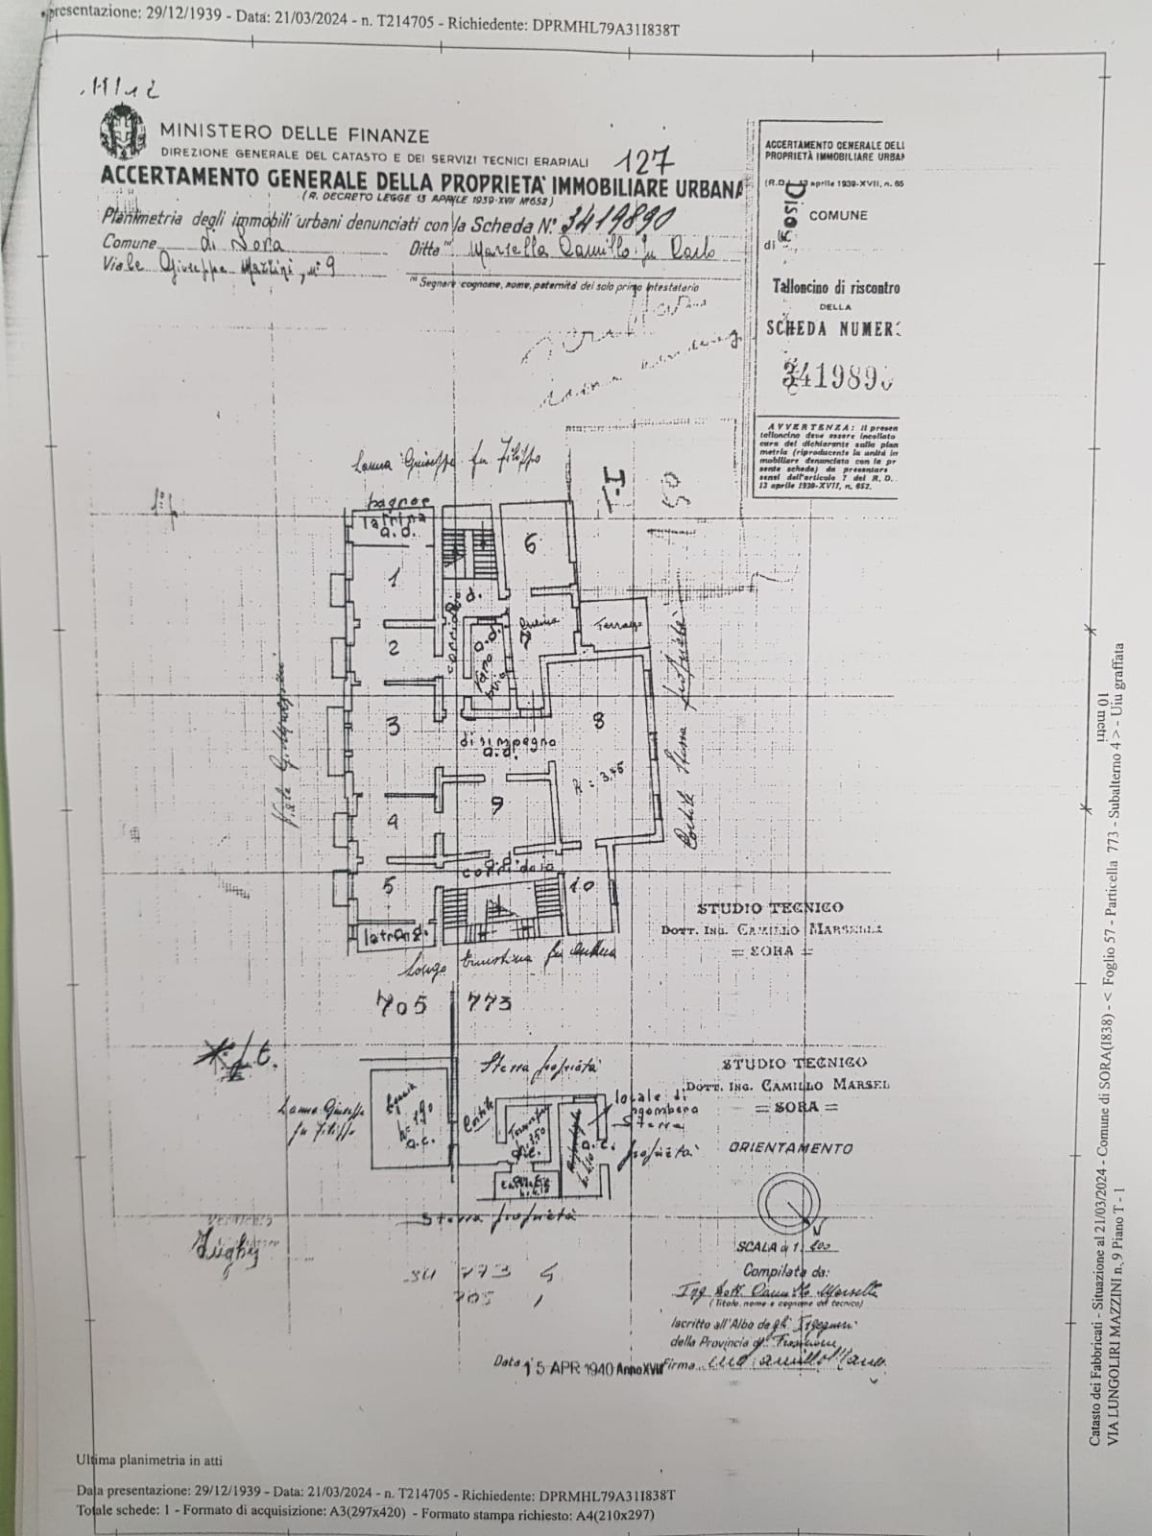 presentazione: 29/12/1939 - Data: 21/03/2024 - n. T214705 - Richiedente: DPRMHL79A31I838T
MINISTERO DELLE FINANZE
DIREZIONE GENERALE DEL CATASTO E DEI SERVIZI TECNICI ERARIALI
127
ACCERTAMENTO GENERALE DELLA PROPRIETÀ IMMOBILIARE URBANA
(R. DECRETO LEGGE 13 APRILE 1939-XVII Nº652)
Planimetria degli immobili urbani denunciati con la Scheda Nº 3419890
Comune di Sora
Ditta Marsella Camillo fu Carlo
Viale Giuseppe Mazzini, nº 9
Segnare cognome, nome, paternità del solo primo intestatario
ACCERTAMENTO GENERALE DELL
PROPRIETÀ IMMOBILIARE URBAN
(R.D.L. 13 aprile 1939-XVII, n. 65
COMUNE
di
Talloncino di riscontro
DELLA
SCHEDA NUMER
3419890
AVVERTENZA: Il presen
talloncino deve essere incollato
cura del dichiarante sulla plan
metria (riproducente la unità im
mobiliare denunciata con la pr
sente scheda) da presentare
sensi dell'articolo 7 del R. D.
13 aprile 1939-XVII, n. 652.
Lauua Giuseppe fu Filippo
T-I
bagnoe
latrina
a.d.
6
1
d.
corridoio
Cucina
7
Terrazzo
2
a.d.
3
8
disimpegno
a.d.
h = 3.45
9
4
corridoio
5
10
latrina
Viale G. Mazzini
Cortile Stessa proprietà
STUDIO TECNICO
DOTT. ING. CAMILLO MARSELLA
= SORA =
705 773
P.t.
Stessa proprietà
Lauua Giuseppe
fu Filippo
a.c.
Cortile
locale di
sgombero
Stessa
proprietà
a.c.
Stessa proprietà
STUDIO TECNICO
DOTT. ING. CAMILLO MARSEL
= SORA =
ORIENTAMENTO
773 4
705 1
SCALA di 1: 200
Compilata da:
Ing. Dott. Camillo Marsella
(Titolo, nome e cognome del tecnico)
Iscritto all'Albo degli Ingegneri
della Provincia di Frosinone
Data 15 APR 1940 Anno XVIII Firma
Ultima planimetria in atti
Data presentazione: 29/12/1939 - Data: 21/03/2024 - n. T214705 - Richiedente: DPRMHL79A31I838T
Totale schede: 1 - Formato di acquisizione: A3(297x420) - Formato stampa richiesto: A4(210x297)
10 metri
Catasto dei Fabbricati - Situazione al 21/03/2024 - Comune di SORA(I838) - < Foglio 57 - Particella 773 - Subalterno 4 > - Uiu graffata
VIA LUNGOLIRI MAZZINI n. 9 Piano T - 1